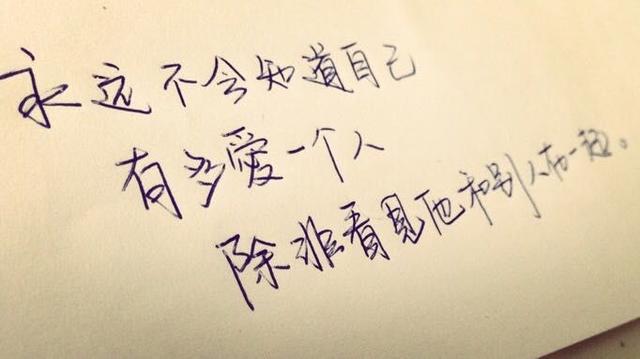 永远不会知道自己
有多愛一个人
除非看見他和别人在一起。